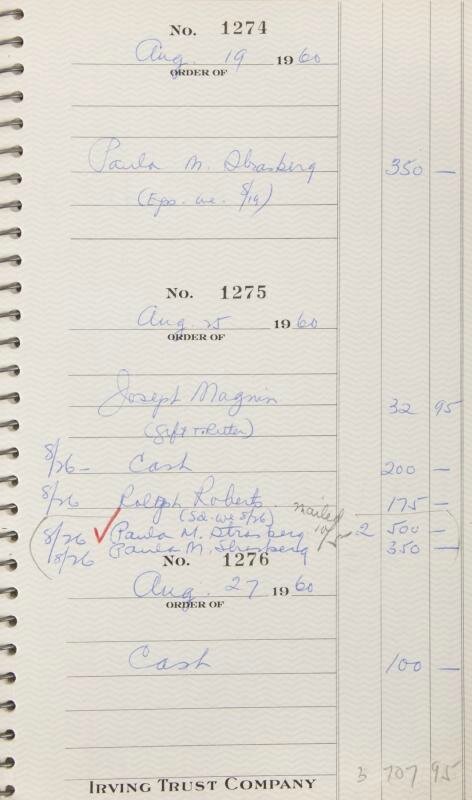 No. 1274
Aug. 19 1960
ORDER OF
Paula M. Strasberg 350 —
(Exps. we. 8/19)
No. 1275
Aug. 25 1960
ORDER OF
Joseph Magnin 32 95
(Gift T. Ritter)
8/26 — Cash 200 —
8/26 Ralph Roberts 175 —
(Sal. we 8/26) mailed
8/26 ✓ Paula M. Strasberg 2 500 —
8/26 Paula M. Strasberg 350 —
No. 1276
Aug. 27 1960
ORDER OF
Cash 100 —
3 707 95
IRVING TRUST COMPANY